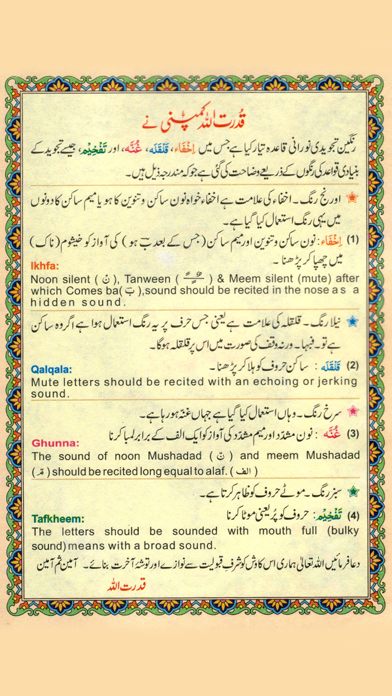 قدرت اللہ کمپنی نے
رنگین تجویدی نورانی قاعدہ تیار کیا ہے جس میں اِخْفَاء، قَلْقَلَه، غُنَّه، اور تَفْخِیْم، جیسے تجوید کے
بنیادی قواعد کی رنگوں کے ذریعے وضاحت کی گئی ہے جو کہ مندرجہ ذیل ہیں۔
★ اورنج رنگ۔ اخفاء کی علامت ہے اخفاء خواہ نون ساکن و تنوین کا ہو یا میم ساکن کا دونوں
میں یہی رنگ استعمال کیا گیا ہے۔
(1) اِخْفَاء: نون ساکن و تنوین اور میم ساکن (جس کے بعد بَ ہو) کی آواز کو خیشوم (ناک)
میں چھپا کر پڑھنا۔
Ikhfa:
Noon silent ( نْ ), Tanween ( ـًـٍـٌ ) & Meem silent (mute) after
which Comes ba( بَ ),sound should be recited in the nose as a
hidden sound.
★ نیلا رنگ۔ قلقلہ کی علامت ہے یعنی جس حرف پر یہ رنگ استعمال ہوا ہے اگر وہ ساکن
ہے تو فبہا۔ ورنہ وقف کی صورت میں اس پر قلقلہ ہوگا۔
(2) قَلْقَلَه: ساکن حروف کو ہلا کر پڑھنا۔
Qalqala:
Mute letters should be recited with an echoing or jerking
sound.
★ سرخ رنگ۔ وہاں استعمال کیا گیا ہے جہاں غنہ ہو رہا ہے۔
(3) غُنَّه: نون مشدّد اور میم مشدّد کی آواز کو ایک الف کے برابر لمبا کرنا
Ghunna:
The sound of noon Mushadad ( نّ ) and meem Mushadad
( مّ ) should be recited long equal to alaf. ( الف )
★ سبز رنگ۔ موٹے حروف کو ظاہر کرتا ہے۔
(4) تَفْخِیْم: حروف کو پُر یعنی موٹا کرنا
Tafkheem:
The letters should be sounded with mouth full (bulky
sound) means with a broad sound.
دعا فرمائیں اللہ تعالیٰ ہماری اس کاوش کو شرفِ قبولیت سے نوازے اور توشۂ آخرت بنائے۔ آمین ثم آمین
قدرت اللہ